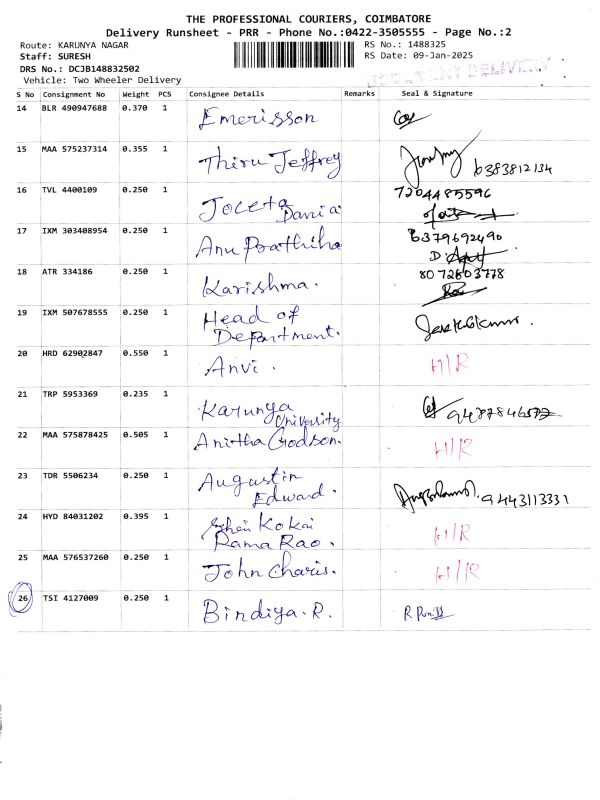 THE PROFESSIONAL COURIERS, COIMBATORE
Delivery Runsheet - PRR - Phone No.:0422-3505555 - Page No.:2
Route: KARUNYA NAGAR RS No.: 1488325
Staff: SURESH RS Date: 09-Jan-2025
DRS No.: DCJB148832502
Vehicle: Two Wheeler Delivery
DELIVERY
S No Consignment No Weight PCS Consignee Details Remarks Seal & Signature
14 BLR 490947688 0.370 1 Emerisson
15 MAA 575237314 0.355 1 Thiru Jeffrey 6383812134
16 TVL 4400109 0.250 1 Joceta 7204485596
Dania
17 IXM 303408954 0.250 1 Anu Prathiba 6379692490
18 ATR 334186 0.250 1 Karishma. 8072603778
19 IXM 507678555 0.250 1 Head of
Department.
20 HRD 62902847 0.550 1 Anvi. H/R
21 TRP 5953369 0.235 1 Karunya
University
22 MAA 575878425 0.505 1 Anitha Godson. H/R
23 TDR 5506234 0.250 1 Augustin
Edward. 9443113331
24 HYD 84031202 0.395 1 Kokai
Rama Rao. H/R
25 MAA 576537260 0.250 1 John Charis. H/R
26 TSI 4127009 0.250 1 Bindiya. R.